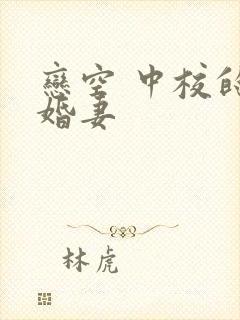 戀空 中校的
婚妻
林虎